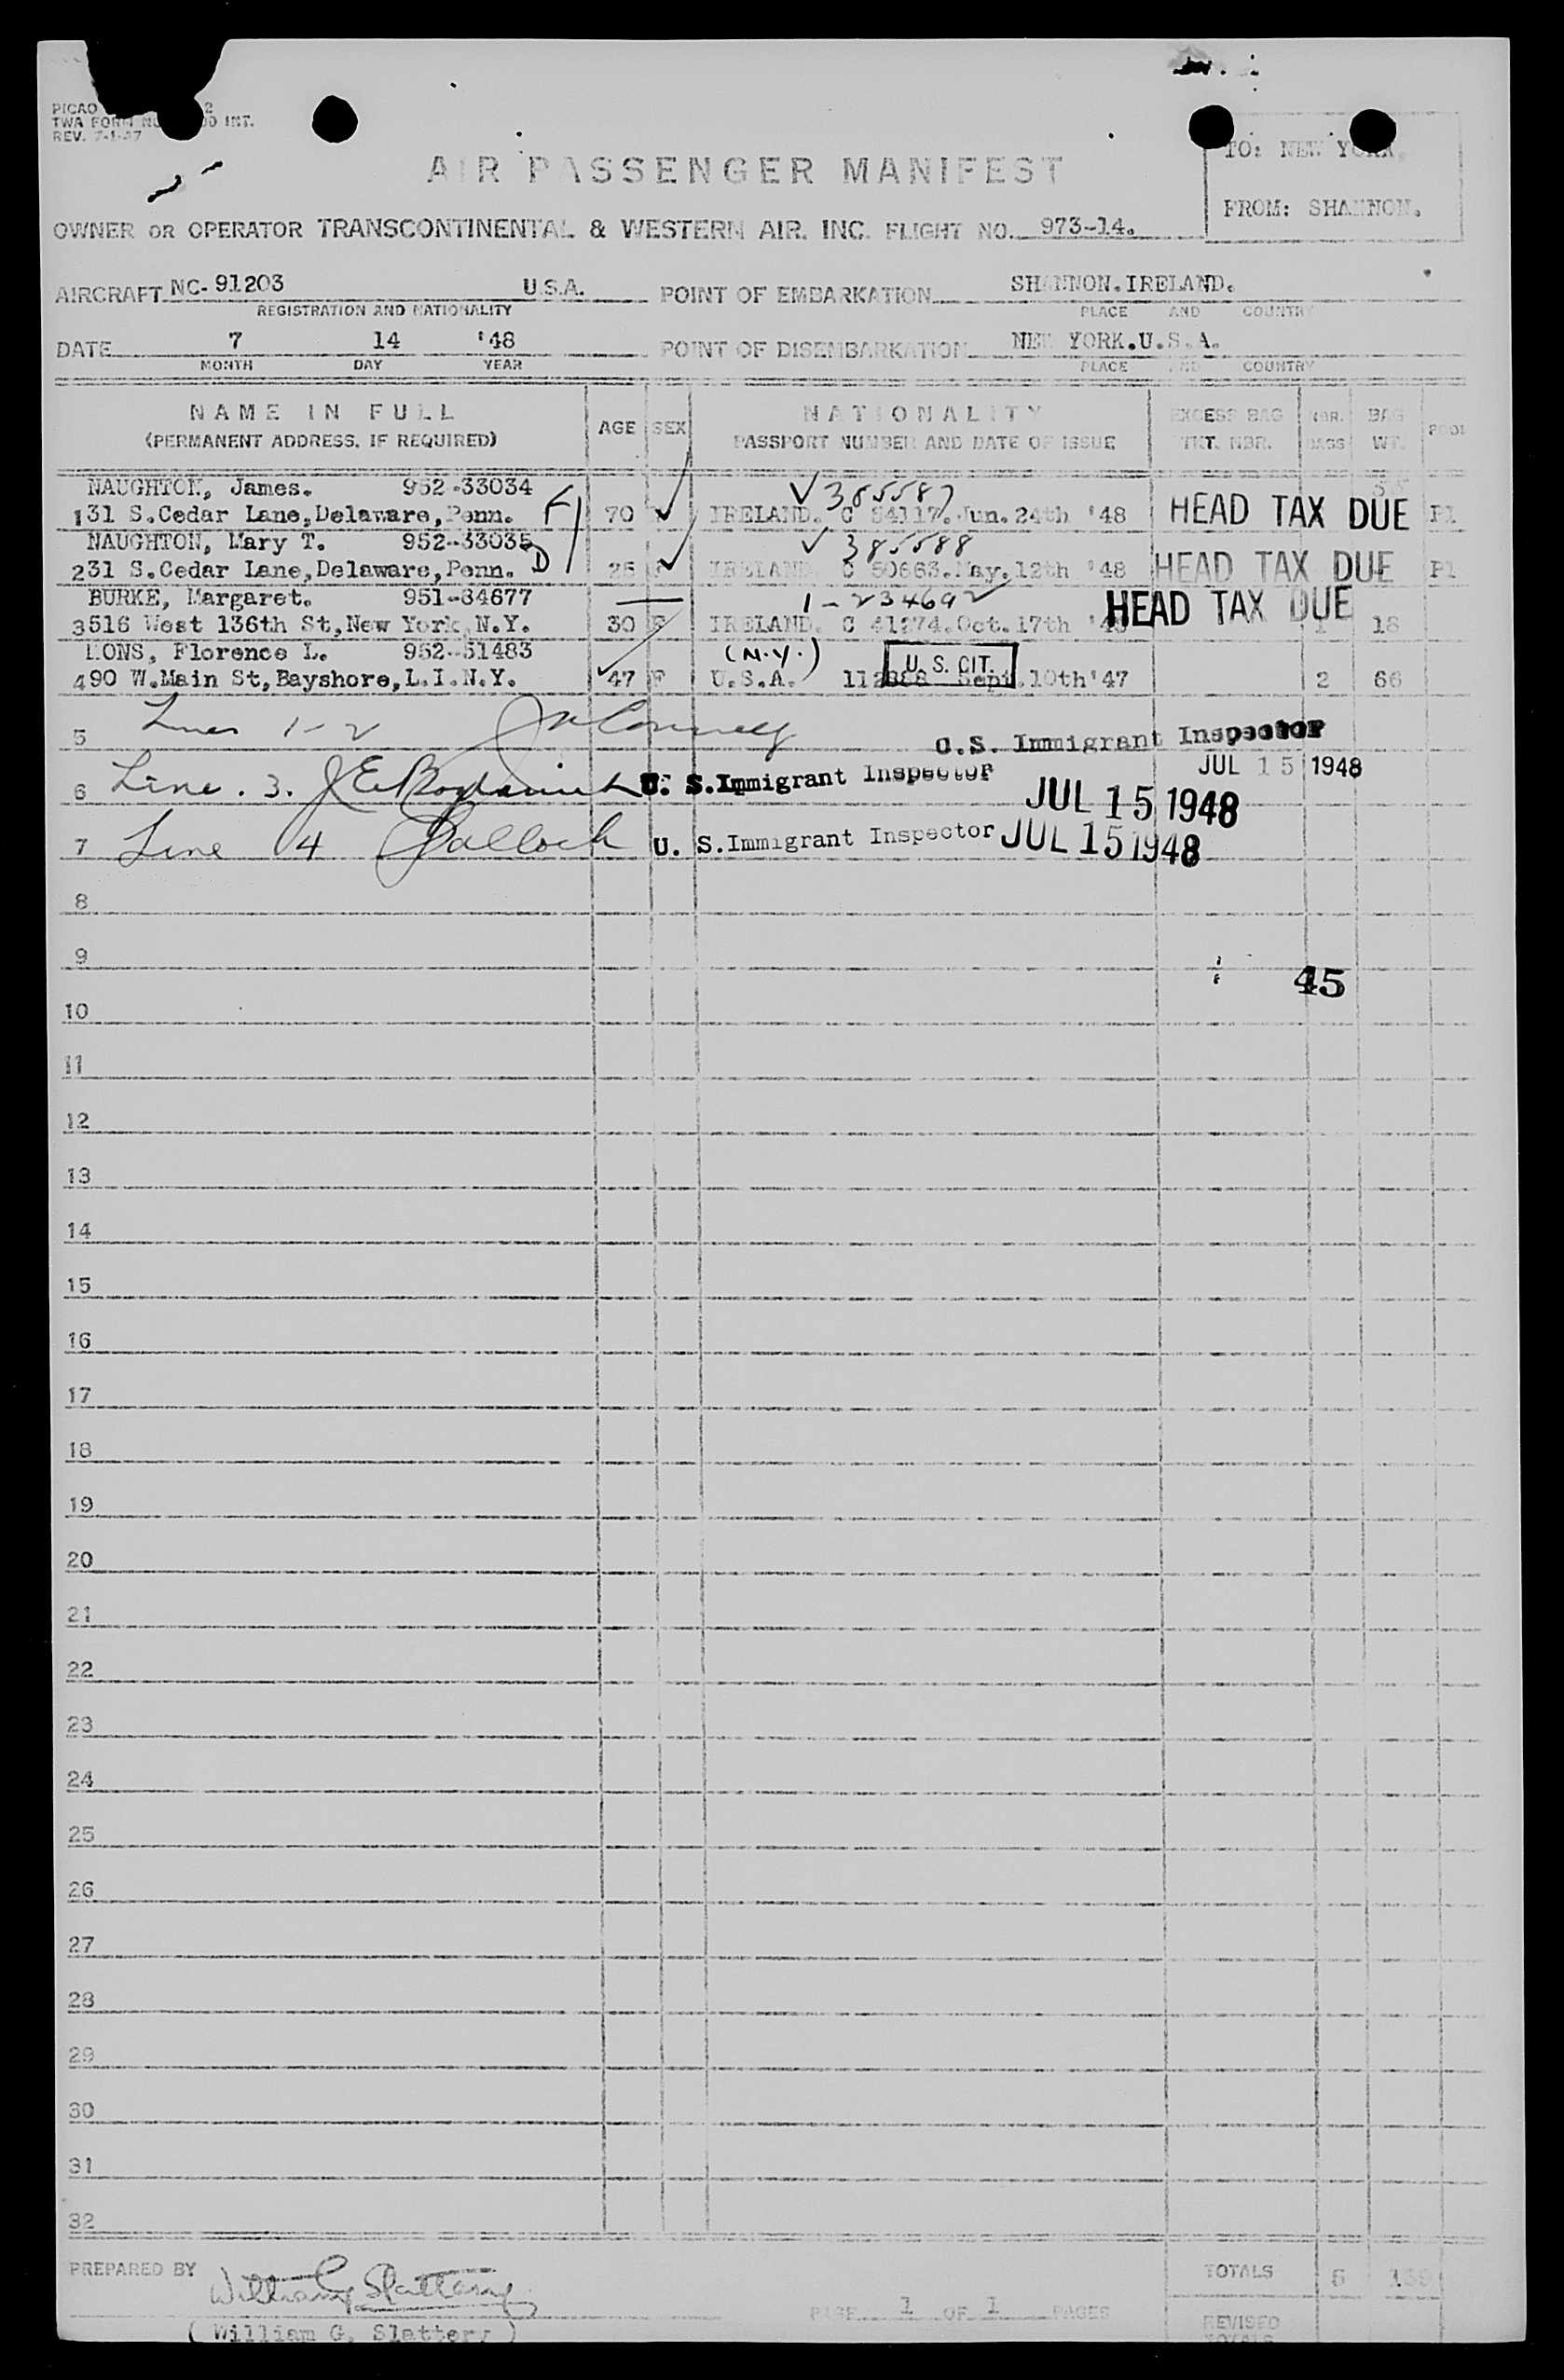 PICAO 2
TWA FORM NO. 00 INT.
REV. 7-1-47
TO: NEW YORK.
AIR PASSENGER MANIFEST
FROM: SHANNON.
OWNER OR OPERATOR TRANSCONTINENTAL & WESTERN AIR. INC. FLIGHT NO. 973-14.
AIRCRAFT NC-91203 U.S.A. POINT OF EMBARKATION SHANNON.IRELAND.
REGISTRATION AND NATIONALITY PLACE AND COUNTRY
DATE 7 14 '48 POINT OF DISEMBARKATION NEW YORK.U.S.A.
MONTH DAY YEAR PLACE AND COUNTRY
NAME IN FULL AGE SEX NATIONALITY EXCESS BAG NBR. BAG POOL
(PERMANENT ADDRESS, IF REQUIRED) PASSPORT NUMBER AND DATE OF ISSUE TKT. NBR. BAGS WT.
NAUGHTON, James. 952-33034 385587
1 31 S.Cedar Lane,Delaware,Penn. 70 IRELAND. C 54117.Jun.24th '48 HEAD TAX DUE P1
NAUGHTON, Mary T. 952-33035 385588
2 31 S.Cedar Lane,Delaware,Penn. D 25 F IRELAND C 50663.May.12th '48 HEAD TAX DUE P1
BURKE, Margaret. 951-84677 1-234692
3 516 West 136th St,New York,N.Y. 30 F IRELAND. C 41274.Oct.17th HEAD TAX DUE 1 18
MONS, Florence L. 952-51483 (N.Y.) U. S. CIT.
4 90 W.Main St,Bayshore,L.I.N.Y. 47 F U.S.A. 112388 Sept.10th'47 2 66
5 Lines 1-2 U.S. Immigrant Inspector
JUL 15 1948
6 Line. 3. U. S.Immigrant Inspector JUL 15 1948
7 Line 4 U. S.Immigrant Inspector JUL 15 1948
8
9
45
10
11
12
13
14
15
16
17
18
19
20
21
22
23
24
25
26
27
28
29
30
31
32
PREPARED BY William G. Slattery TOTALS 5 139
PAGE 1 OF 1 PAGES
REVISED
TOTALS
( William G. Slattery )